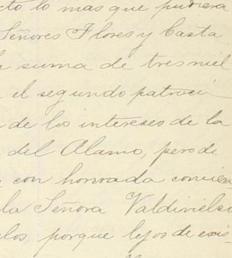 cto lo mas que pudiera
Señores Flores y Casta
a suma de tres mil
el segundo patroci
de los intereses de la
del Alamo, pero de
con honrada concien
la Señora Valdivielso
los, porque lejos de exis-